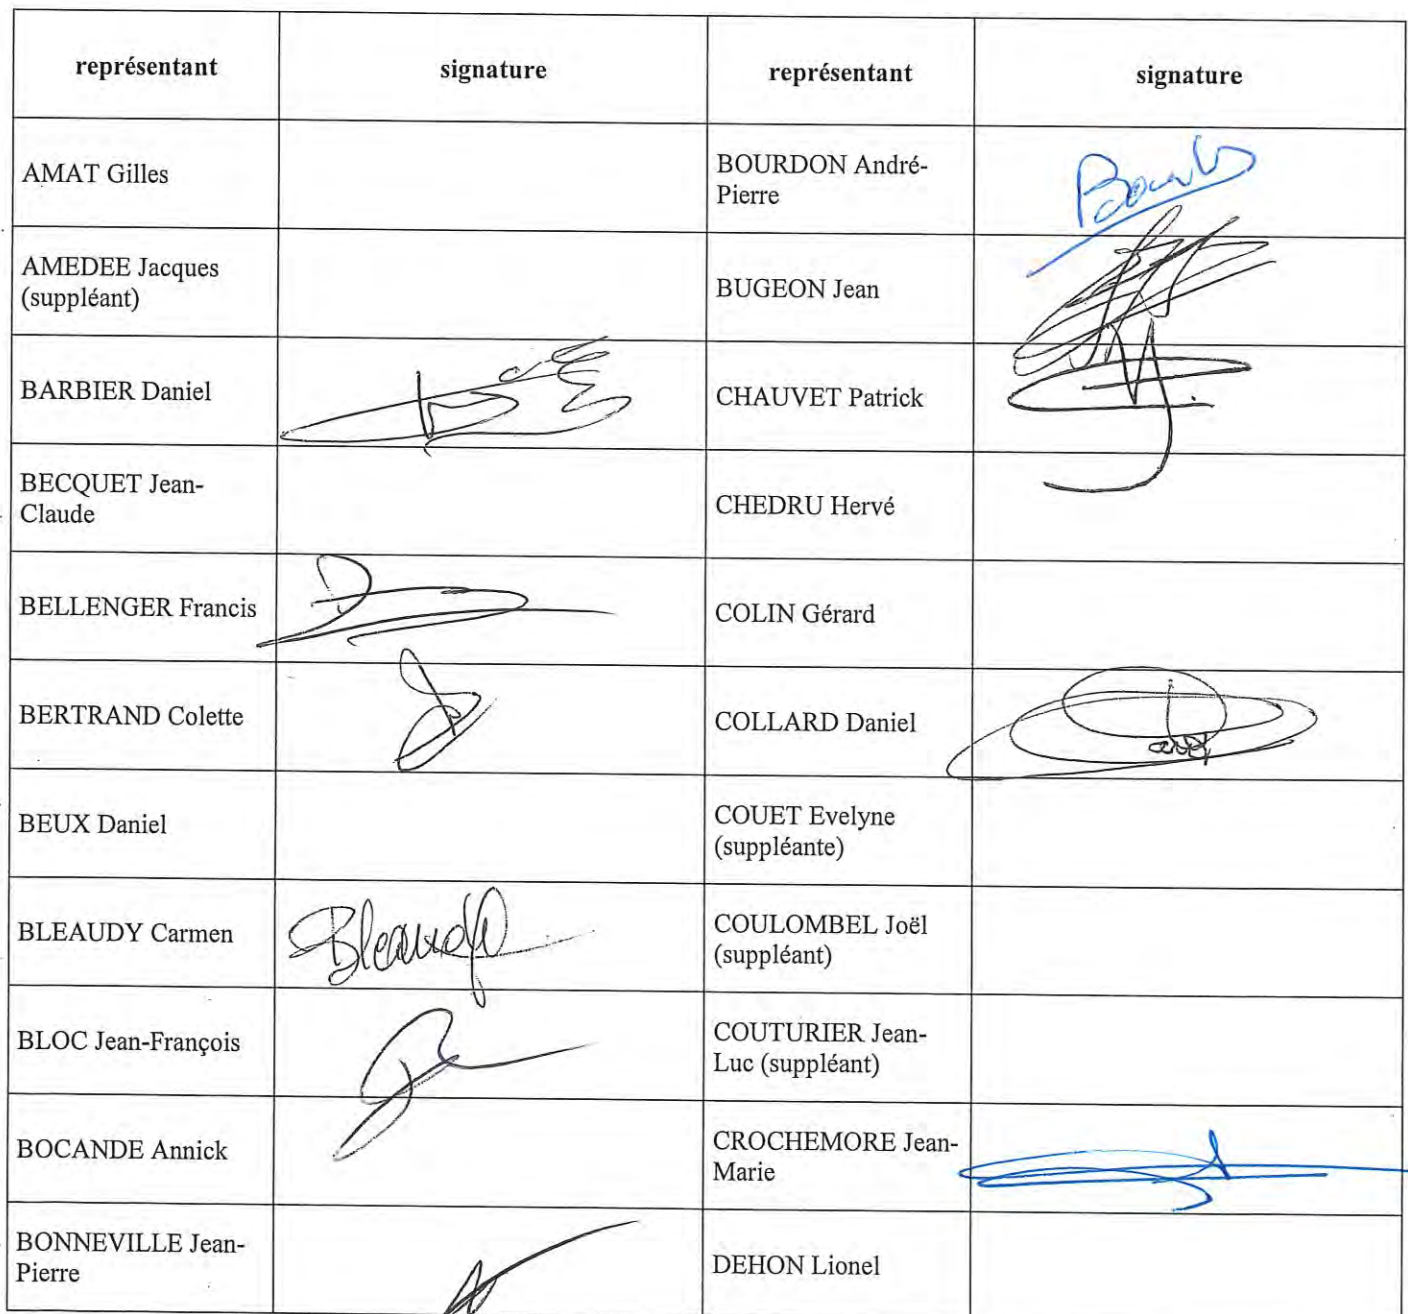 représentant signature représentant signature
AMAT Gilles
BOURDON André-
Pierre
AMEDEE Jacques
(suppléant)
BUGEON Jean
BARBIER Daniel
CHAUVET Patrick
BECQUET Jean-
Claude
CHEDRU Hervé
BELLENGER Francis
COLIN Gérard
BERTRAND Colette
COLLARD Daniel
BEUX Daniel
COUET Evelyne
(suppléante)
BLEAUDY Carmen
Bleaudy
COULOMBEL Joël
(suppléant)
BLOC Jean-François
COUTURIER Jean-
Luc (suppléant)
BOCANDE Annick
CROCHEMORE Jean-
Marie
BONNEVILLE Jean-
Pierre
DEHON Lionel